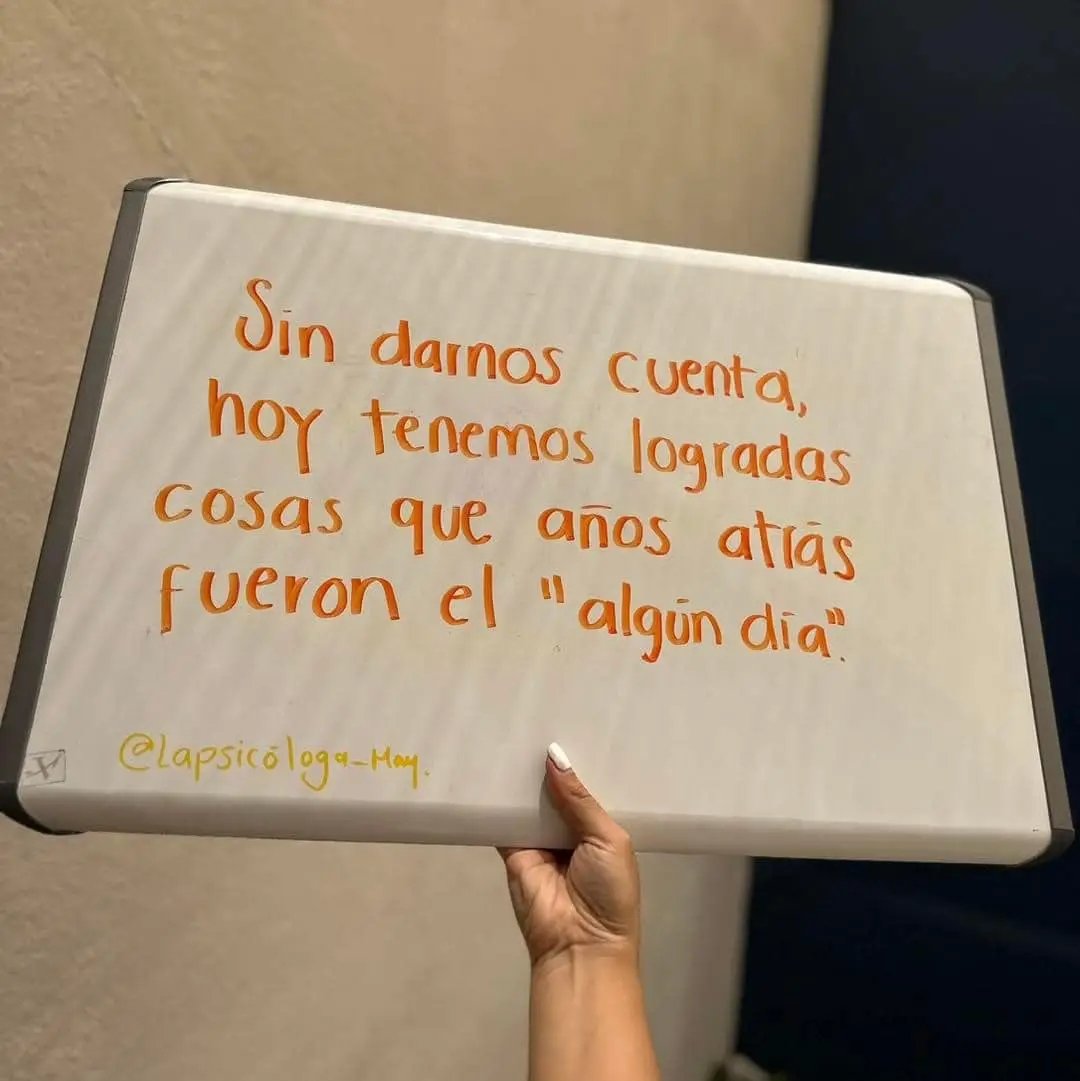 Sin darnos cuenta,
hoy tenemos logradas
cosas que años atrás
fueron el "algún día".
@Lapsicóloga_May.